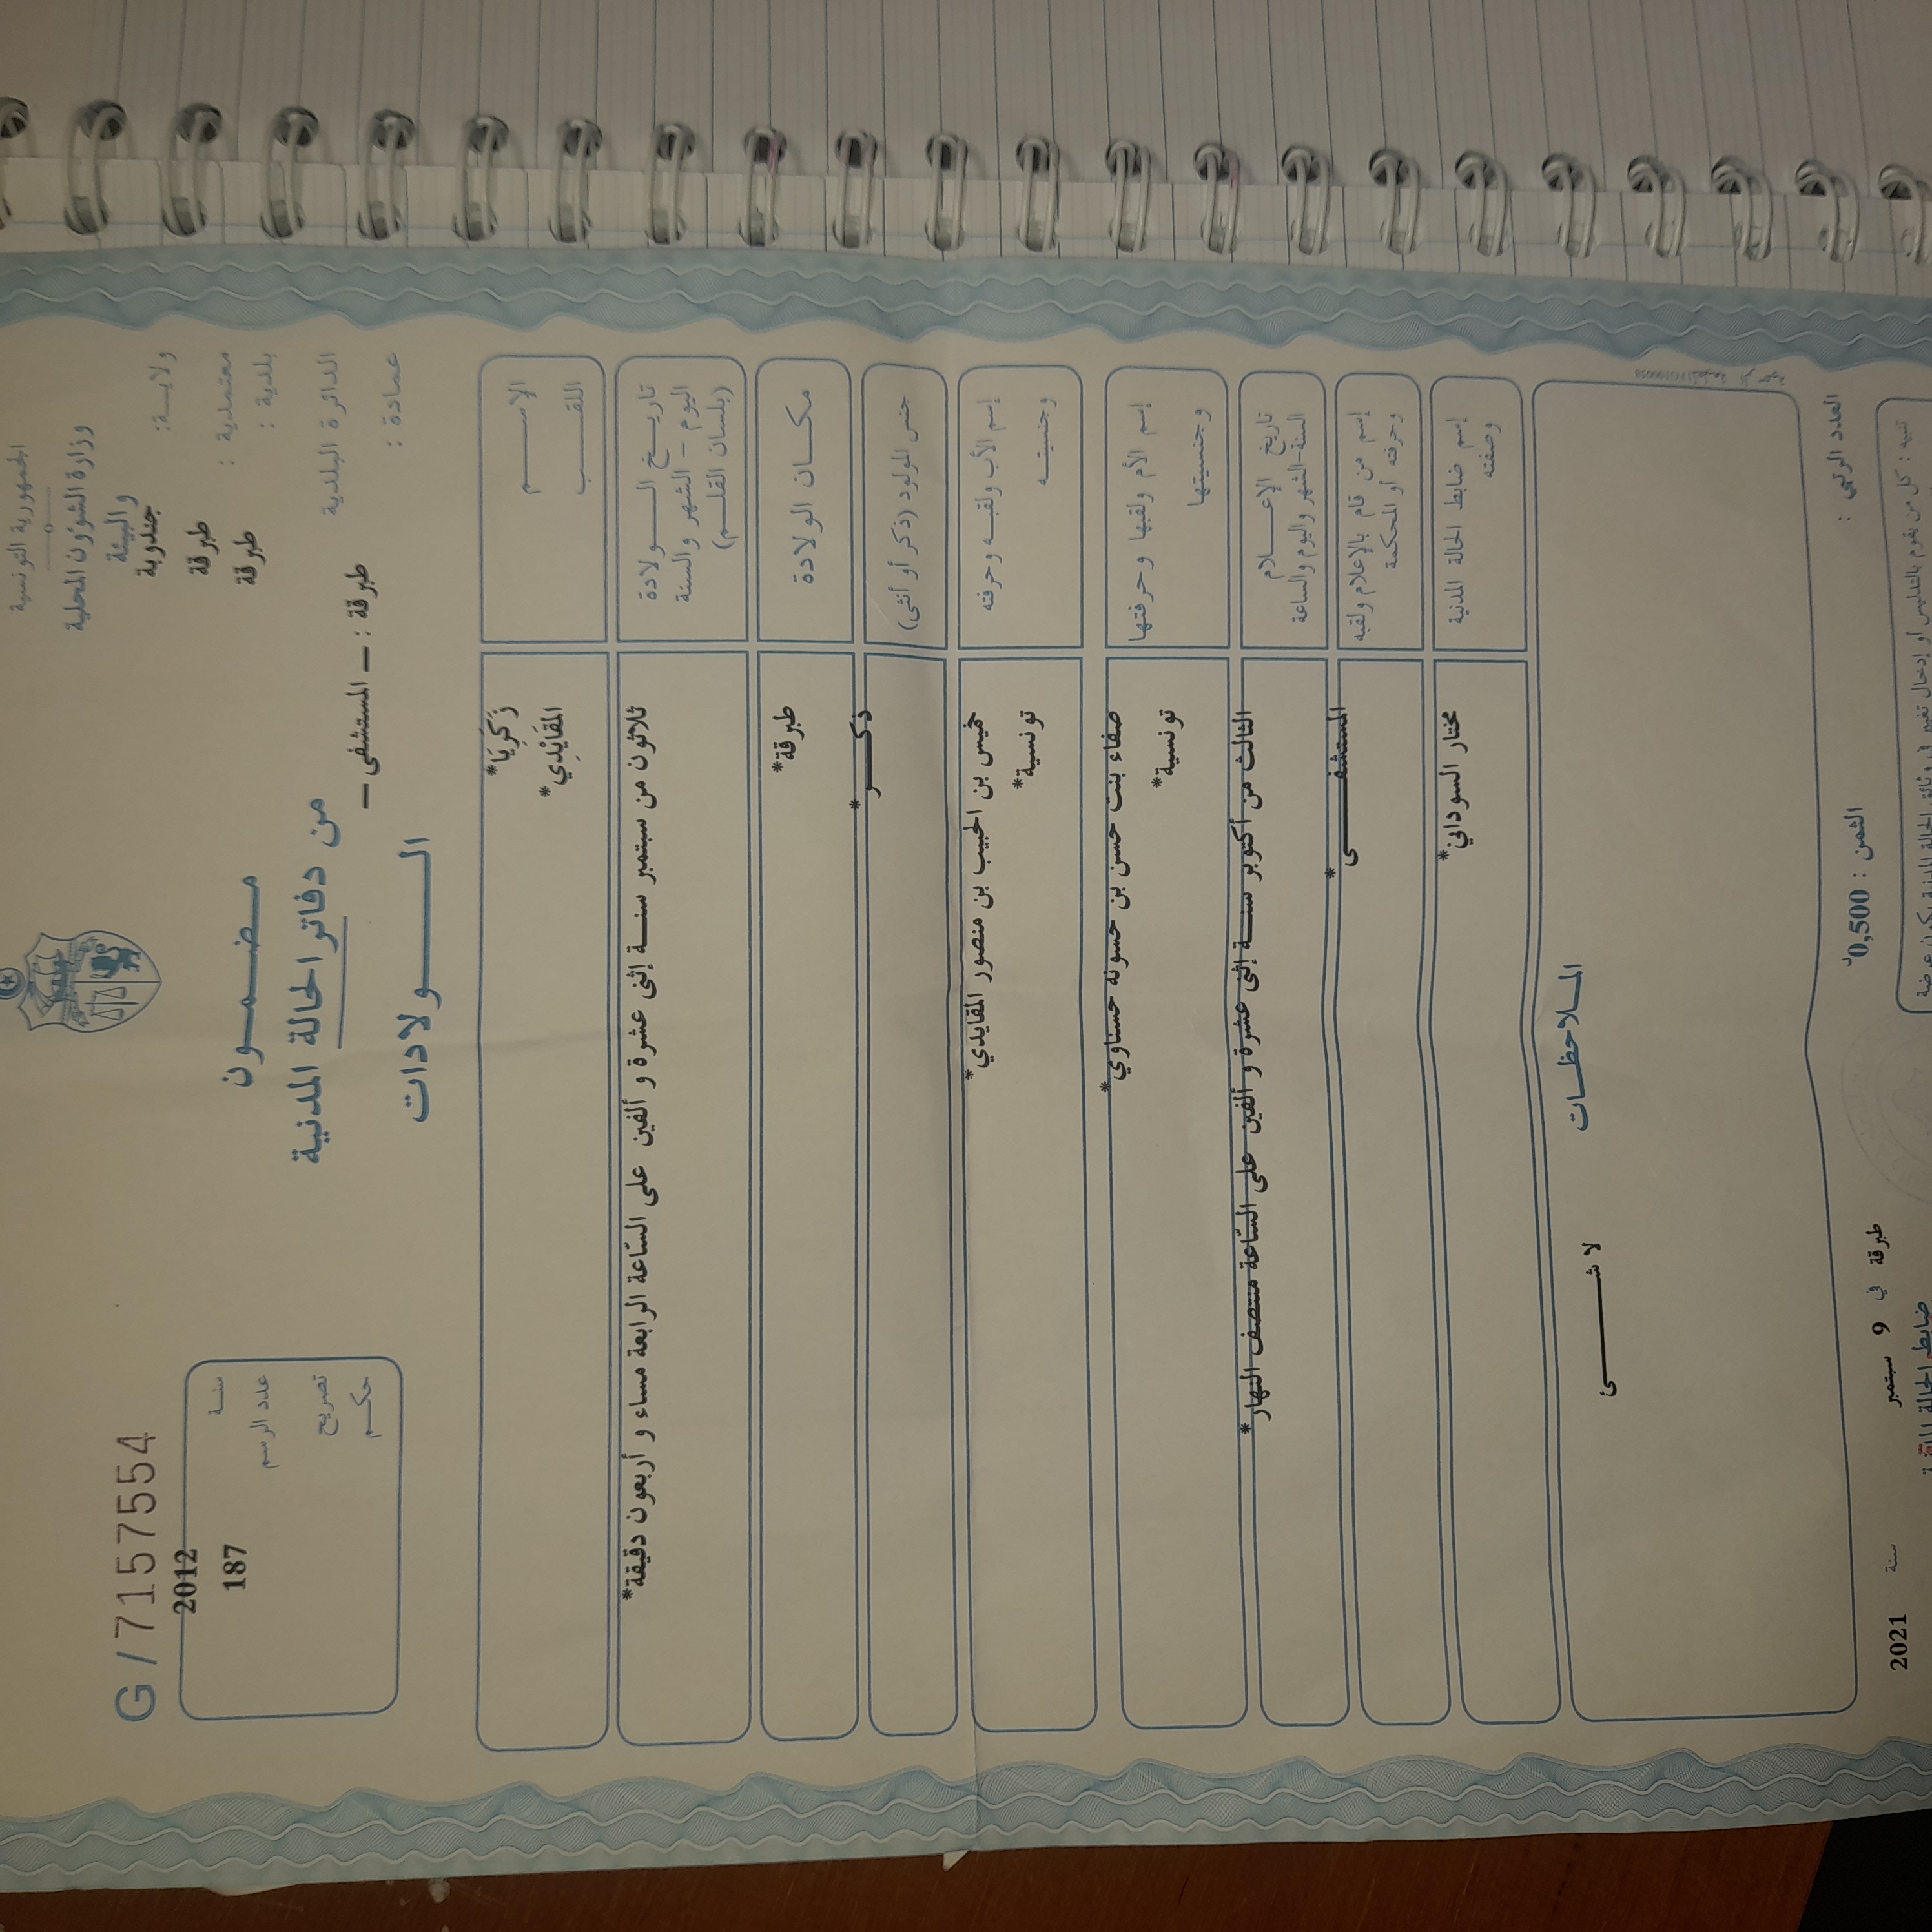 الجمهورية التونسية
وزارة الشؤون المحلية
والبيئة
ولايـة: جندوبة
معتمدية : طبرقة
بلدية : طبرقة
الدائرة البلدية
طبرقة : - المستشفى -
عمادة :
مضمـــون
من دفاتر الحالة المدنية
الـــولادات
G/7157554
سنـة 2012
عدد الرسم 187
تصريح
حكـم
الإســـم زَكَرِيَا*
اللقـــب المَقَايْدِي*
تاريـــخ الـــولادة
اليوم - الشهر والسنة
(بلسان القلـــم)
ثلاثون من سبتمبر سنــة إثنى عشرة و ألفين على السّاعة الرابعة مساء و أربعون دقيقة*
مكــان الولادة طبرقة*
جنس المولود (ذكر أو أنثى) ذكـــر*
إسم الأب ولقبــه وحرفته خميس بن الحبيب بن منصور المقايدي*
وجنسيتــه تونسية*
إسم الأم ولقبها وحرفتها صفاء بنت حسن بن حسونه حسناوي*
وجنسيتها تونسية*
تاريخ الإعـــلام
السنة-الشهر واليوم والساعة
الثالث من أكتوبر سنــة إثنى عشرة و ألفين على السّاعة منتصف النهار*
إسم من قام بالإعلام ولقبه
وحرفته أو المحكمة
المستشفـــى*
إسم ضابط الحالة المدنية
وصفته
مختار السوداني*
الملاحظــات
لا شـــئ
العدد الرتبي :
الثمن : 0,500د
طبرقة في 9 سبتمبر سنة 2021
ضابط الحالة المدنية
تنبيه : كل من يقوم بالتدليس أو إدخال تغيير في وثائق الحالة المدنية يكون عرضة